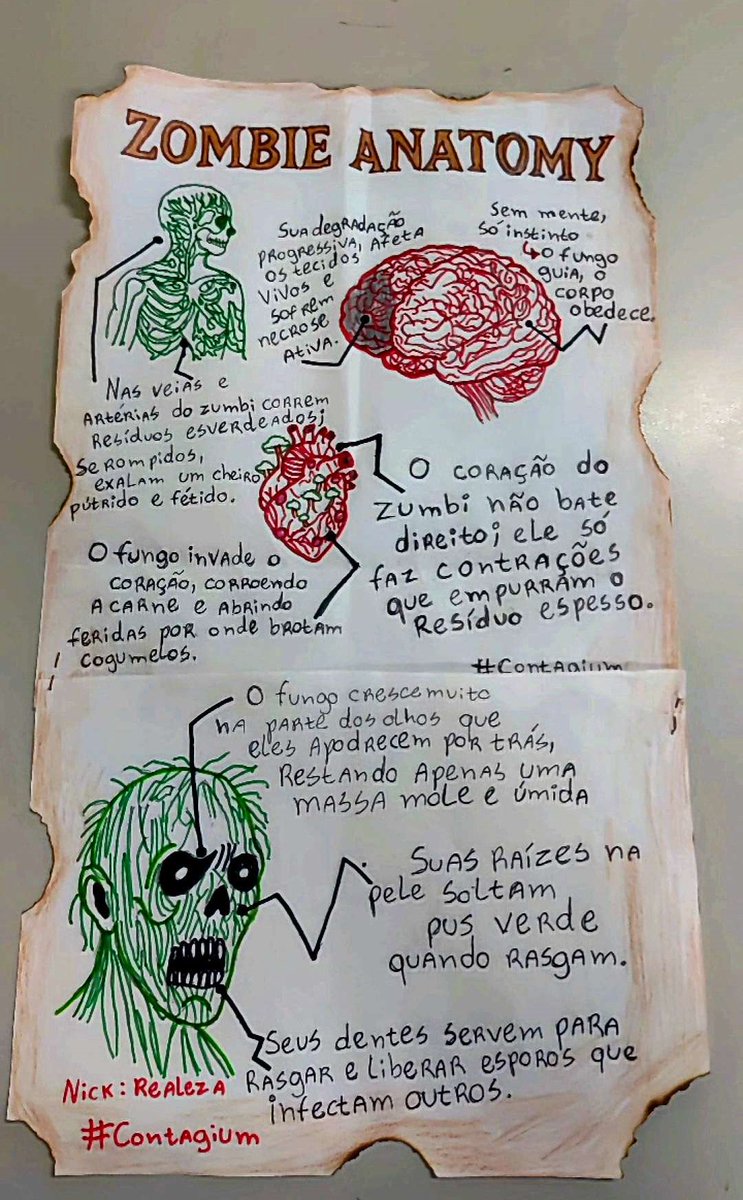 ZOMBIE ANATOMY
Sua degradação
progressiva, afeta
os tecidos
vivos e
sofrem
necrose
ativa.
Sem mente,
só instinto
↳ o fungo
guia, o
corpo
obedece.
Nas veias e
artérias do zumbi correm
resíduos esverdeados;
se rompidos,
exalam um cheiro
pútrido e fétido.
O coração do
zumbi não bate
direito; ele só
faz contrações
que empurram o
resíduo espesso.
O fungo invade o
coração, corroendo
a carne e abrindo
feridas por onde brotam
cogumelos.
#Contagium
O fungo cresce muito
na parte dos olhos que
eles apodrecem por trás,
restando apenas uma
massa mole e úmida
Suas raízes na
pele soltam
pus verde
quando rasgam.
Seus dentes servem para
rasgar e liberar esporos que
infectam outros.
Nick: Realeza
#Contagium